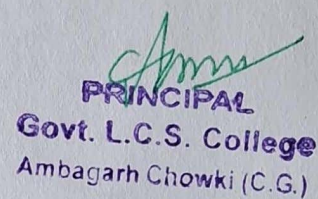 PRINCIPAL
Govt. L.C.S. College
Ambagarh Chowki (C.G.)